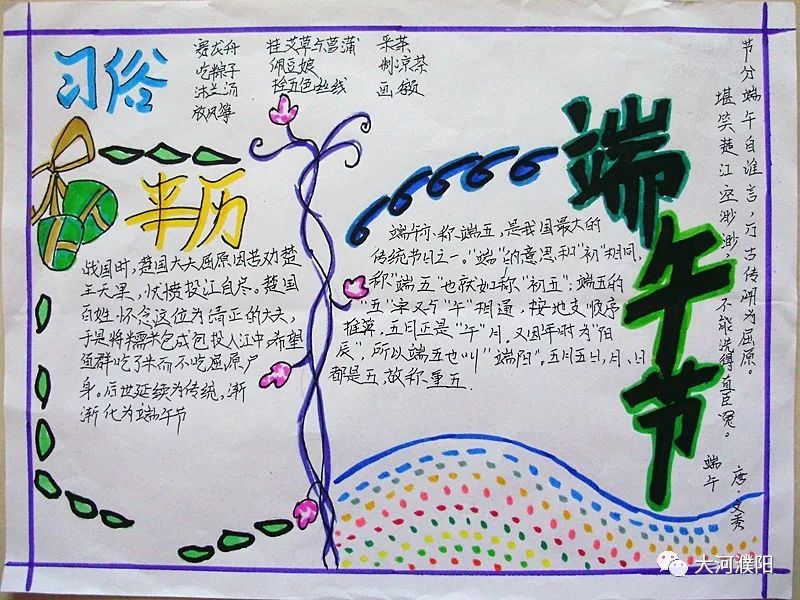 习俗
赛龙舟 挂艾草与菖蒲 采茶
吃粽子 佩豆娘 制凉茶
沐兰汤 拴五色丝线 画额
放风筝
来历
战国时,楚国大夫屈原因苦劝楚
王无果,忧愤投江自尽。楚国
百姓怀念这位为清正的大夫,
于是将糯米包成包投入江中希望
鱼群吃了米而不吃屈原尸
身。后世延续为传统,渐
渐化为端午节
端午节
端午亦称端五,是我国最大的
传统节日之一。"端"的意思和"初"相同,
称"端五"也就如称"初五";端五的
"五"字又与"午"相通,按地支顺序
推算,五月正是"午"月。又因午时为"阳
辰",所以端五也叫"端阳"。五月五日,月、日
都是五,故称重五.
节分端午自谁言,万古传闻为屈原。
堪笑楚江空渺渺,不能洗得直臣冤。
端午
唐·文秀
大河濮阳